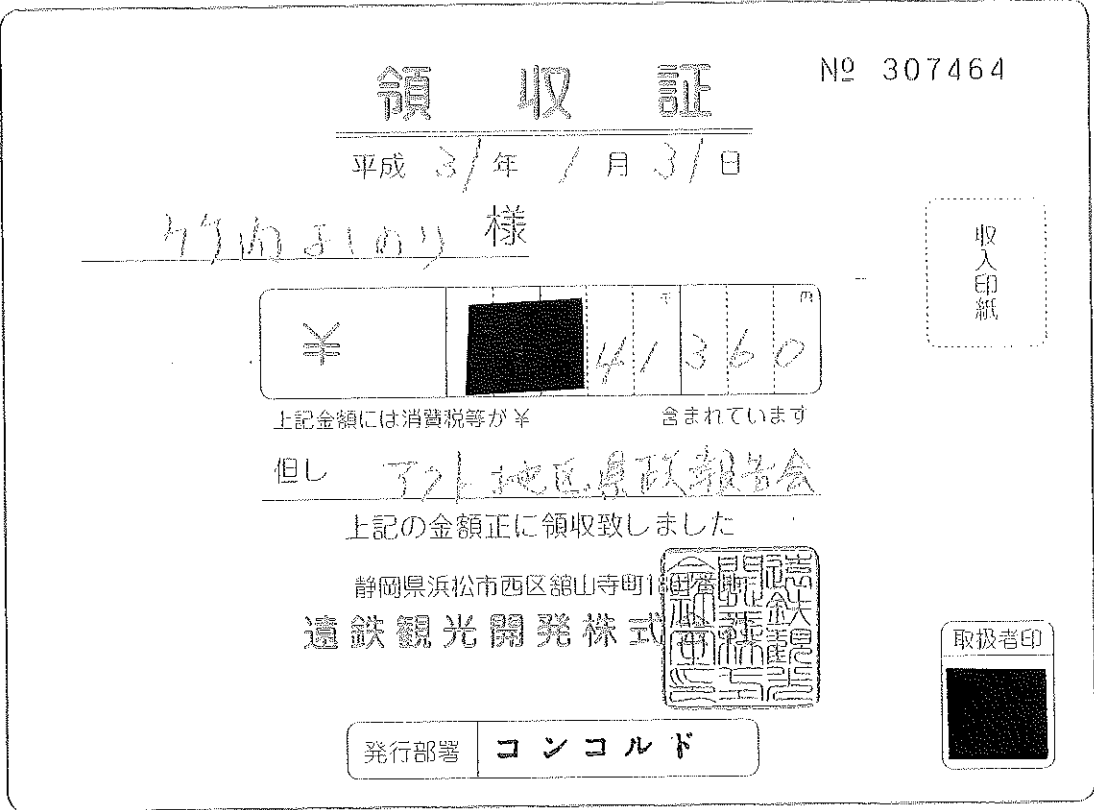 領収証
№ 307464
平成 31年 1月 31日
竹内よしのり 様
収入印紙
千 円
¥ 41360
上記金額には消費税等が¥ 含まれています
但し アクト地区県政報告会
上記の金額正に領収致しました
静岡県浜松市西区舘山寺町18
遠鉄観光開発株式
取扱者印
発行部署 コンコルド